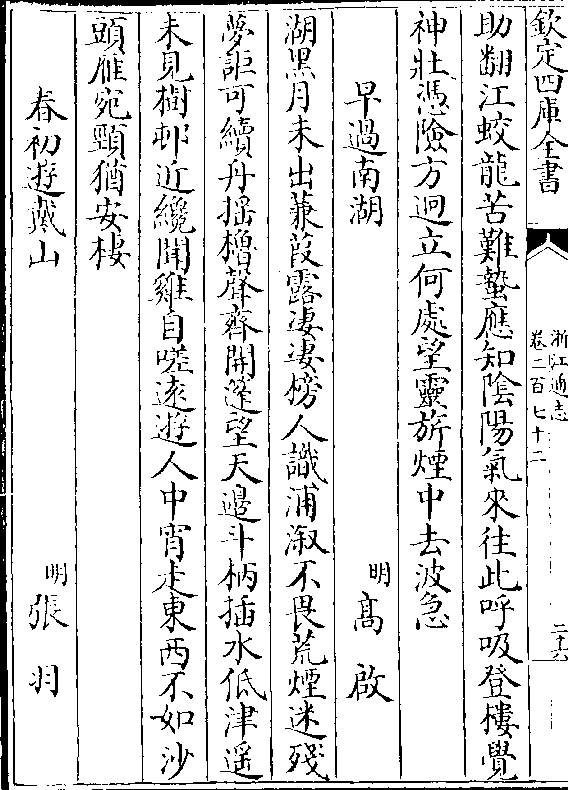 欽定四庫全書
浙江通志
卷二百七十二
二十六
助翻江蛟龍苦難蟄應知陰陽氣來往此呼吸登樓覺
神壯憑險方迥立何處望靈旂煙中去波急
早過南湖
明 高啟
湖黑月未出蒹葭露凄凄榜人識浦溆不畏荒煙迷殘
夢詎可續舟揺櫓聲齊開篷望天邊斗柄插水低津遥
未見樹邨近纔聞雞自嗟逺遊人中宵走東西不如沙
頭雁宛頸猶安棲
春初遊戴山
明 張羽